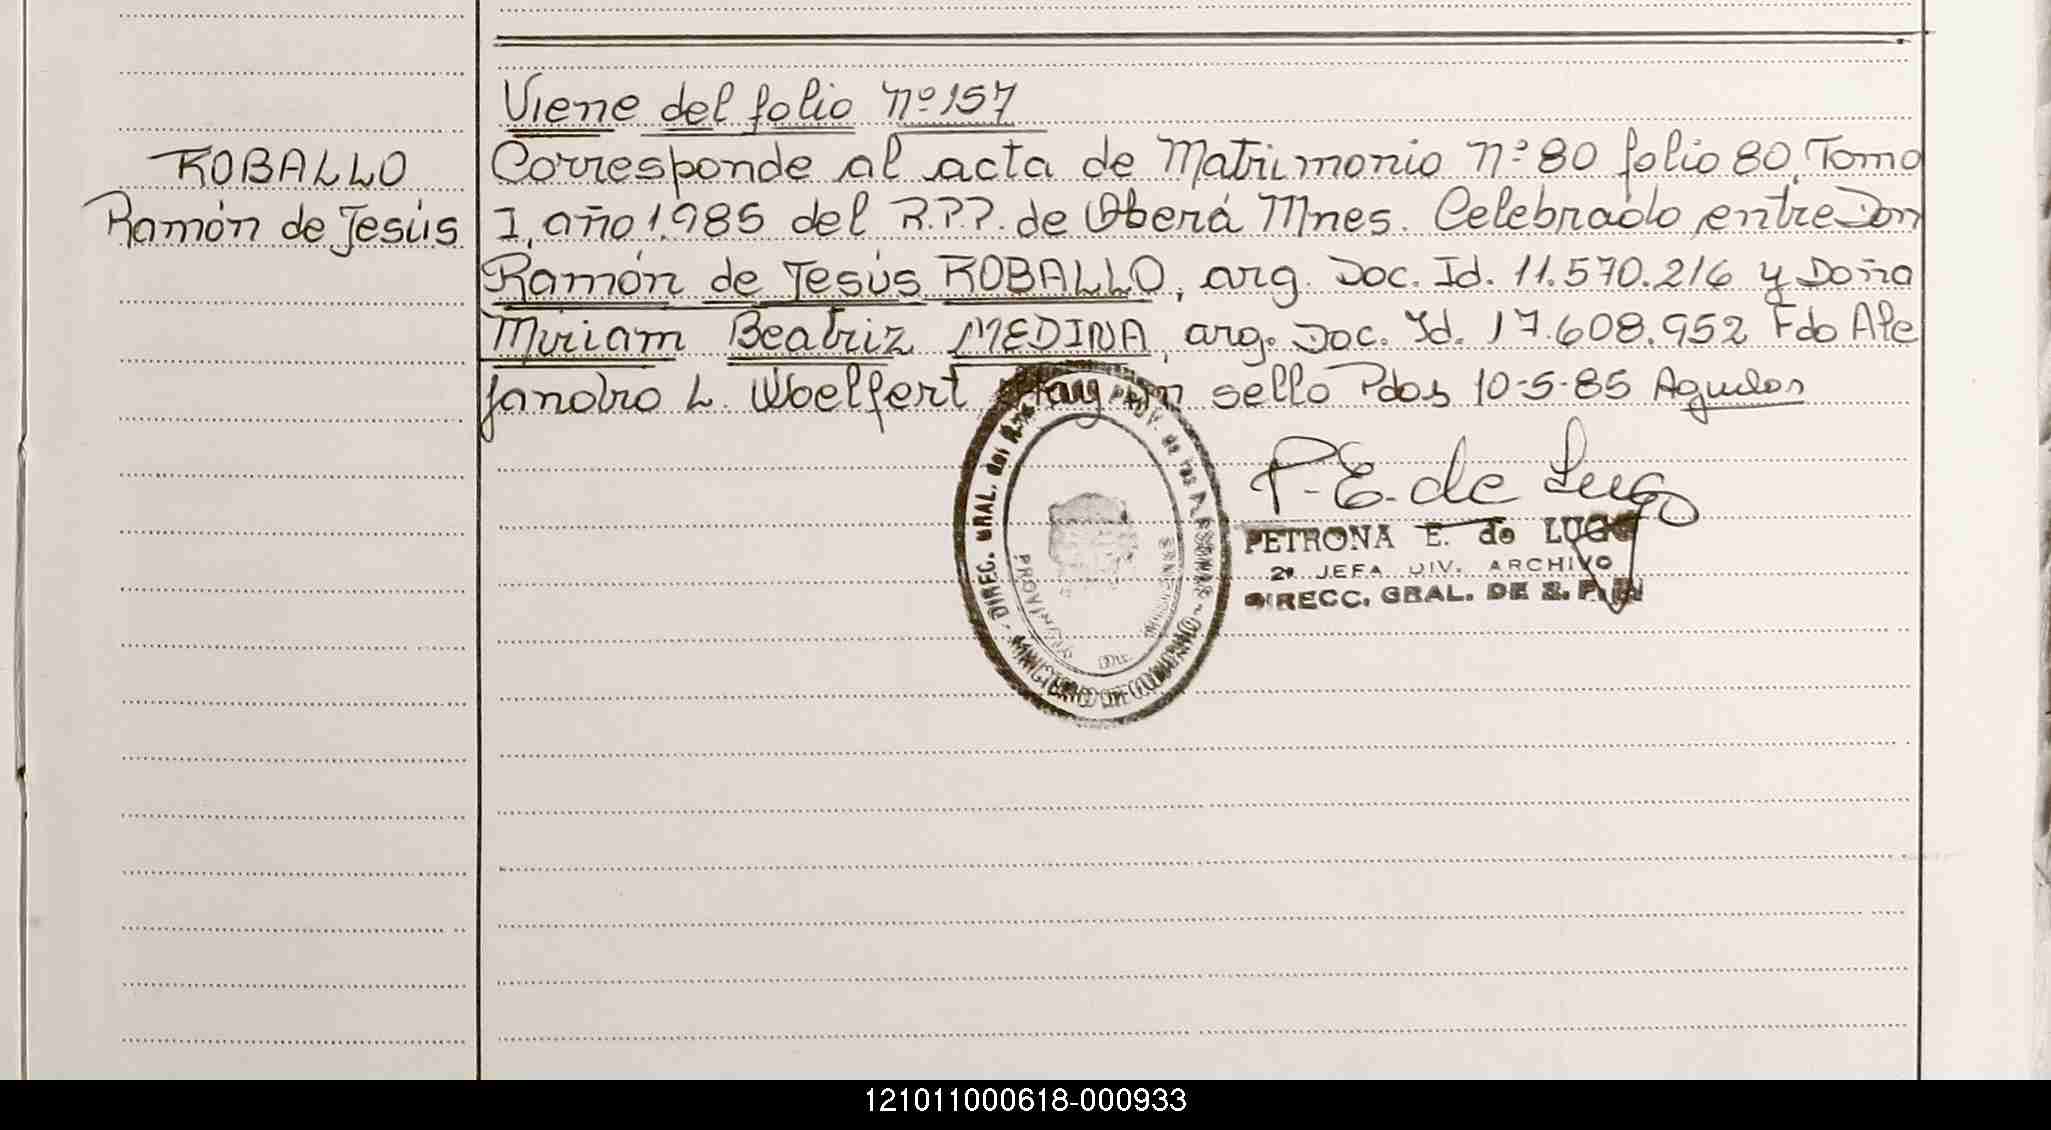 Viene del folio nº 157
ROBALLO
Ramón de Jesús
Corresponde al acta de Matrimonio nº 80 folio 80, Tomo
I, año 1.985 del R.P.P. de Oberá Mnes. Celebrado entre Don
Ramón de Jesús ROBALLO, arg. Doc. Id. 11.570.216 y Doña
Miriam Beatriz MEDINA, arg. Doc. Id. 17.608.952 Fdo Ale
jandro L. Woelfert Hay un sello Pdos 10-5-85
P. E. de Lugo
PETRONA E. de LUGO
2ª JEFA DIV. ARCHIVO
DIRECC. GRAL. DE R. P.
DIREC. GRAL. del
MINISTERIO DE GOBIERNO
121011000618-000933